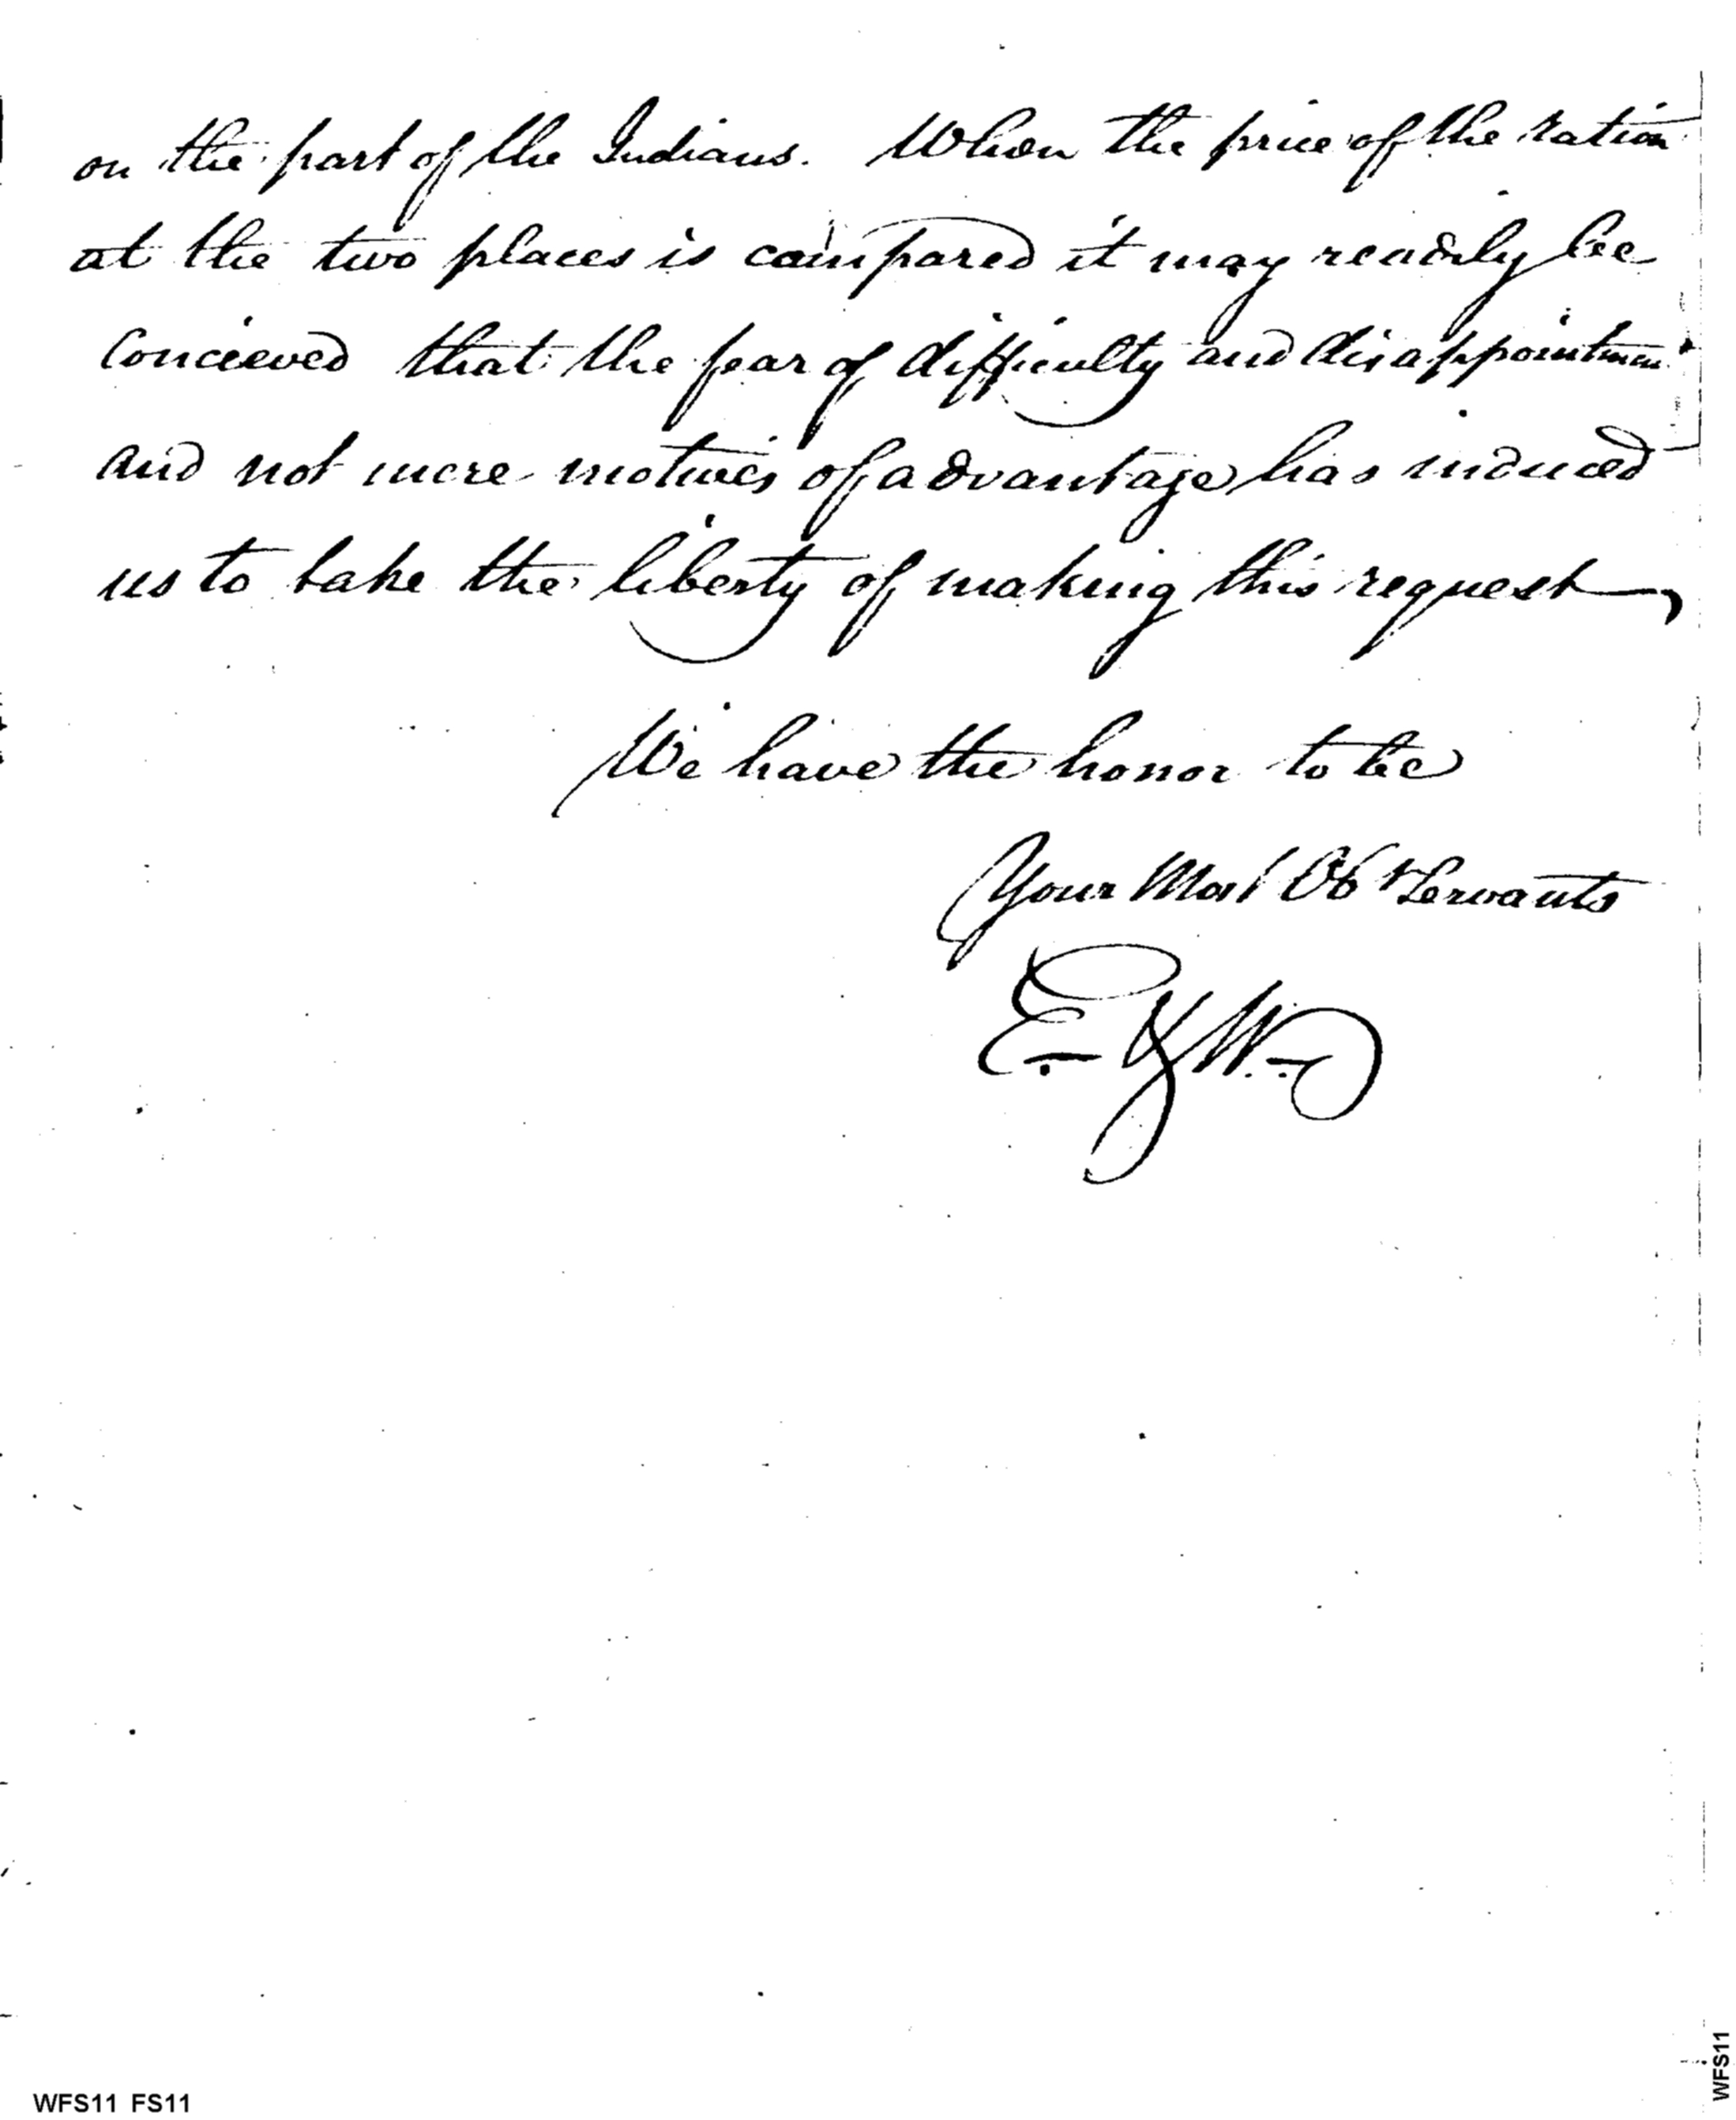 on the part of the Indians. When the price of the ration
at the two places is compared it may readily be
Conceived that the fear of difficulty and disappointment
and not mere motives of advantage has induced
us to take the liberty of making this request,
We have the honor to be
Your Most Ob Servants
E. & W.
WFS11 FS11
WFS11